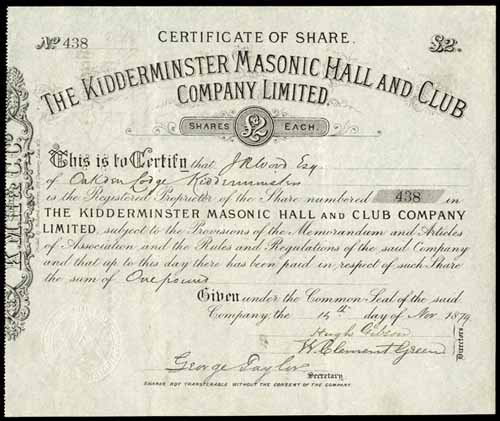 No. 438 CERTIFICATE OF SHARE. £2.
THE KIDDERMINSTER MASONIC HALL AND CLUB
COMPANY LIMITED.
SHARES £2 EACH.
This is to Certify that J R Wood Esq
of Oakden Lodge Kidderminster
is the Registered Proprietor of the Share numbered 438 in
THE KIDDERMINSTER MASONIC HALL AND CLUB COMPANY
LIMITED, subject to the Provisions of the Memorandum and Articles
of Association and the Rules and Regulations of the said Company
and that up to this day there has been paid in respect of such Share
the sum of One pound
Given under the Common Seal of the said
Company, the 14th day of Nov 1879
Hugh Gibson
W. Clement Green
Directors.
George Taylor
Secretary.
SHARES NOT TRANSFERABLE WITHOUT THE CONSENT OF THE COMPANY.